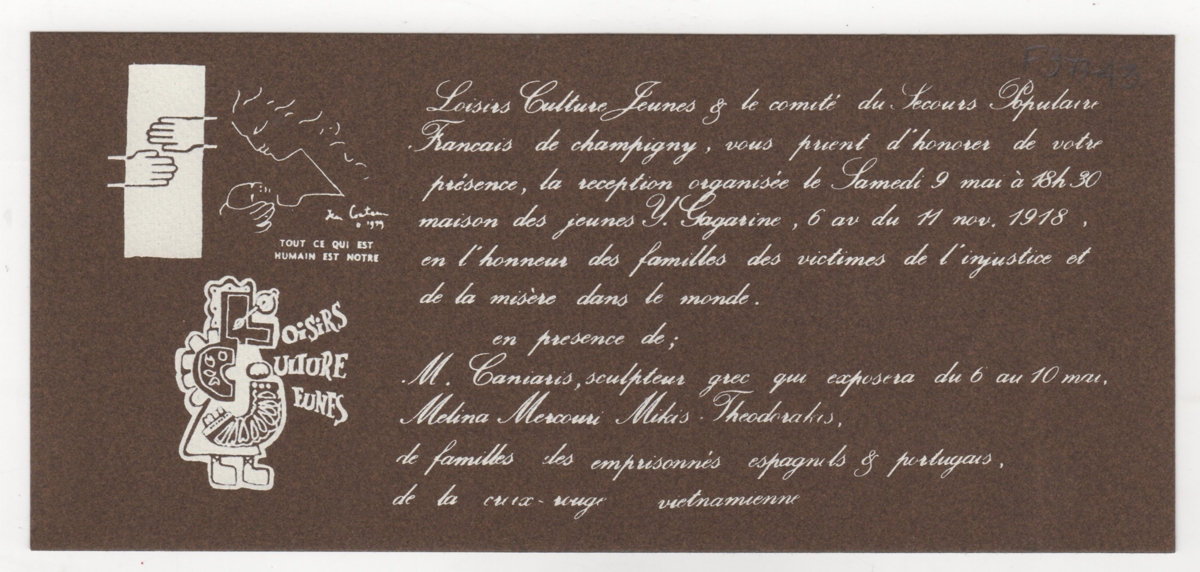 Loisirs Culture Jeunes & le comité du Secours Populaire
Francais de champigny, vous prient d'honorer de votre
présence, la reception organisée le Samedi 9 mai à 18h30
maison des jeunes Y. Gagarine, 6 av du 11 nov. 1918,
en l'honneur des familles des victimes de l'injustice et
de la misère dans le monde.
en presence de;
M. Caniaris, sculpteur grec qui exposera du 6 au 10 mai,
Melina Mercouri Mikis-Theodorakis,
de familles des emprisonnés espagnols & portugais,
de la croix-rouge vietnamienne
TOUT CE QUI EST
HUMAIN EST NOTRE
LOISIRS
CULTURE
JEUNES